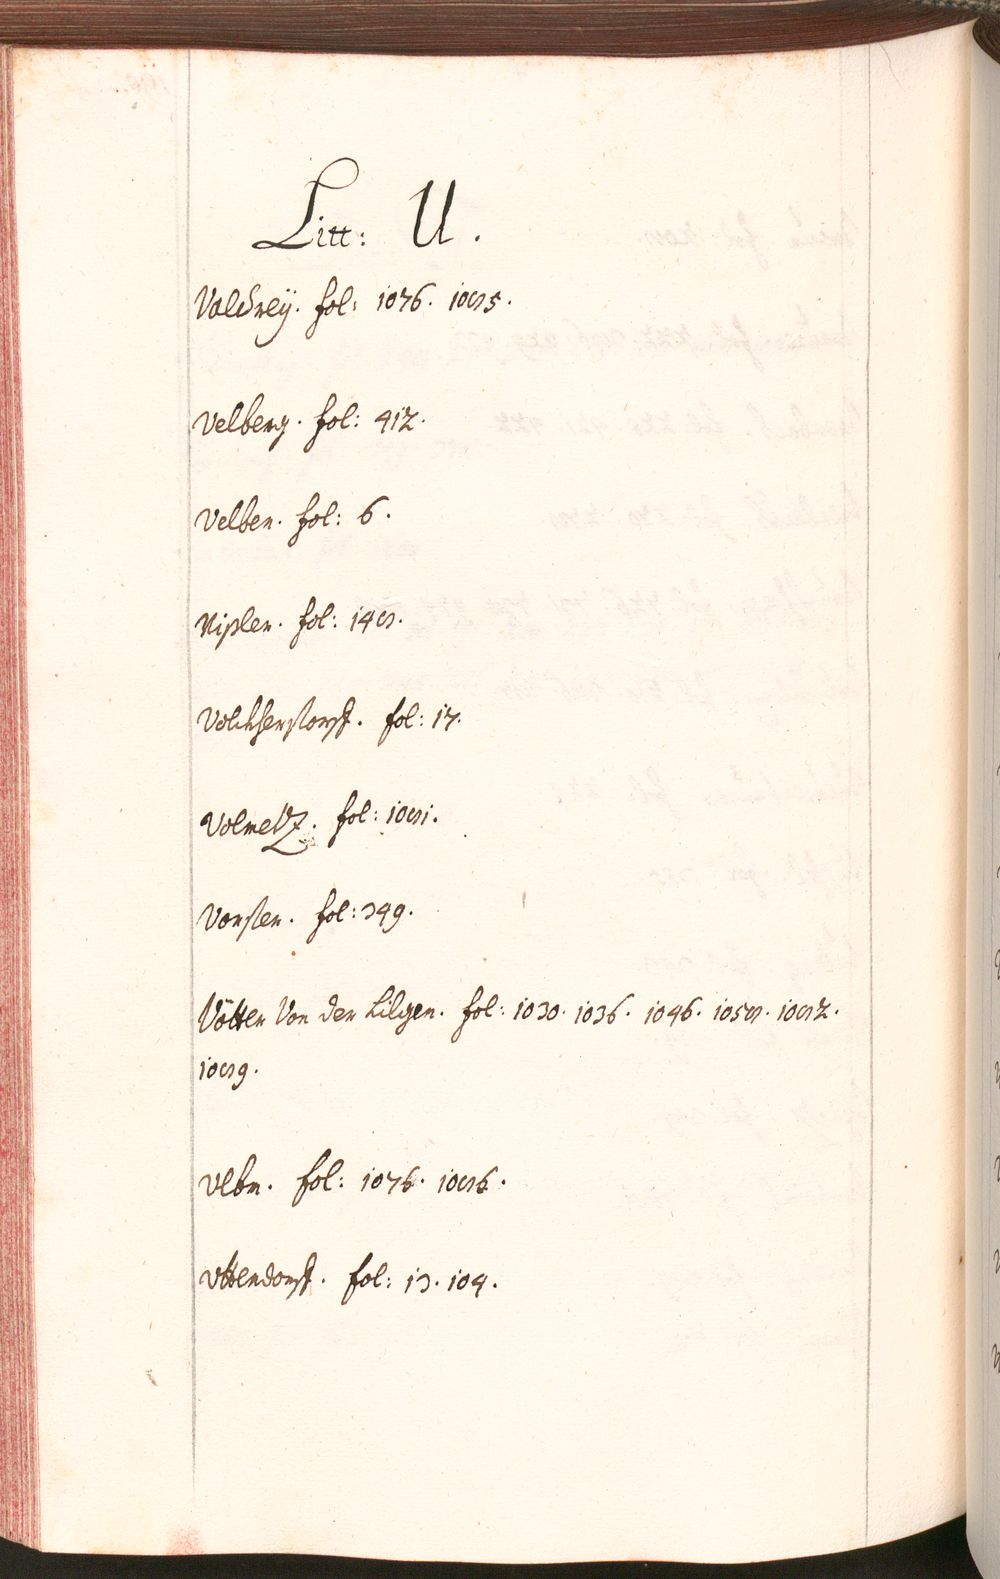 Litt: U.
Valdreÿ. fol: 1076. 1085.
Velberg. fol: 412.
Velben. fol: 6.
Vipler. fol: 148.
Volckherstorff. fol: 17.
Volmetz. fol: 1081.
Vorster. fol: 349.
Vötter Von der Lilgen. fol: 1030. 1036. 1046. 1058. 1082.
1089.
Vlbm. fol: 1076. 1086.
Vttendorff. fol: 13. 104.